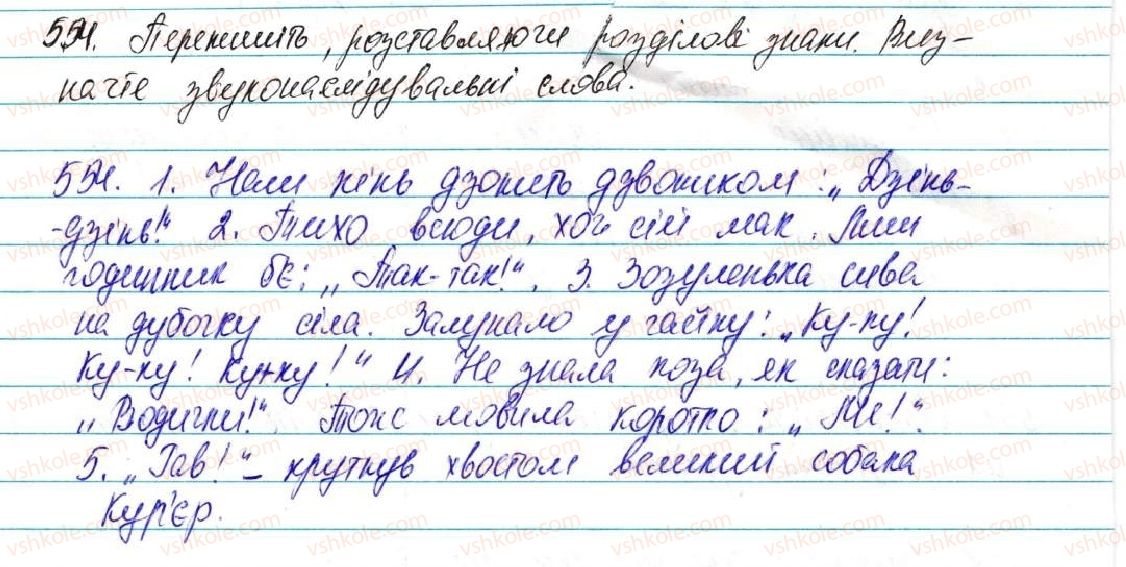 554. Перепишіть, розставляючи розділові знаки. Виз-
начте звуконаслідувальні слова.
554. 1. Наш кінь дзонить дзвоником: „Дзінь-
-дзінь!“ 2. Тихо всюди, хоч сій мак. Лиш
годинник б'є: „Так-так!“. 3. Зозуленька сива
на дубочку сіла. Залунало у гайку: „Ку-ку!
Ку-ку! Ку-ку!“ 4. Не знала коза, як сказати:
„Водички!“. Тож мовила коротко: „Ме!“.
5. „Гав!“ – крутнув хвостом великий собака
Кур'єр.